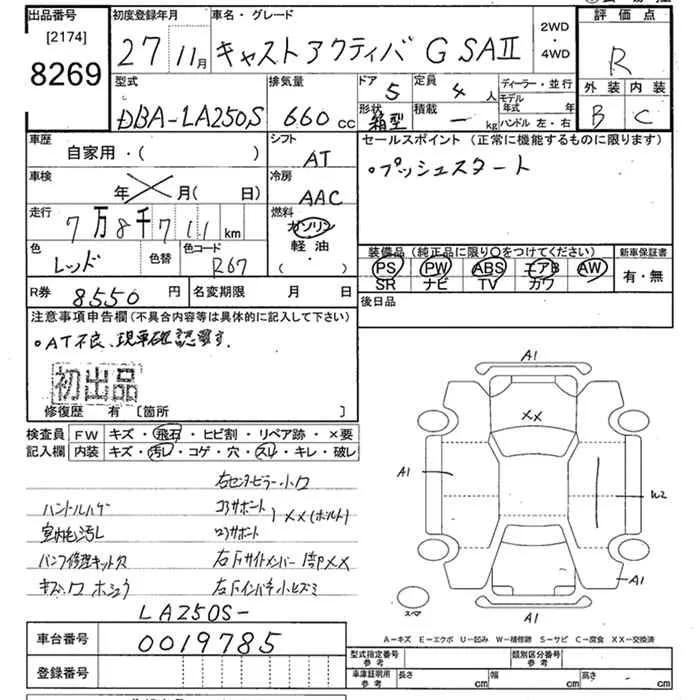 出品番号
[2174]
8269
初度登録年月
27 11月
車名・グレード
キャストアクティバ G SAⅡ
2WD
・
4WD
評価点
R
外装 内装
B C
型式
DBA-LA250S
排気量
660 cc
ドア 5
形状 箱型
定員 4 人
積載 - kg
ディーラー・並行
モデル年式 年
ハンドル 左・右
車歴
自家用・( )
シフト
AT
セールスポイント (正常に機能するものに限ります)
・プッシュスタート
車検
年 月( 日)
冷房
AAC
走行
7万8千711km
燃料
ガソリン
軽油
・( )
色
レッド
色替
色コード
R67
装備品 (純正品に限り○をつけてください)
新車保証書
PS PW ABS エアB AW
SR ナビ TV カワ
有・無
R券 8550 円
名変期限 月 日
後日品
注意事項申告欄(不具合内容等は具体的に記入して下さい)
・AT不良、現車確認要す.
初出品
修復歴 有 [箇所 ]
検査員 FW キズ・飛石・ヒビ割・リペア跡・×要
記入欄 内装 キズ・汚レ・コゲ・穴・スレ・キレ・破レ
右センターピラー小ワ
ハンドルハゲ
コアサポート
XX(ボルト)
室内毛汚レ
ロアサポート
パンク修理キット欠
右Fサイドメンバー XX
右Fインパネ小ヒズミ
LA250S-
車台番号 0019785
登録番号
A1
XX
A1
W2
A1
A1
スペア
A-キズ E-エクボ U-凹み W-補修跡 S-サビ C-腐食 XX-交換済
型式指定番号
参考
類別区分番号
参考
車庫証明用
参考
長さ cm
幅 cm
高さ cm